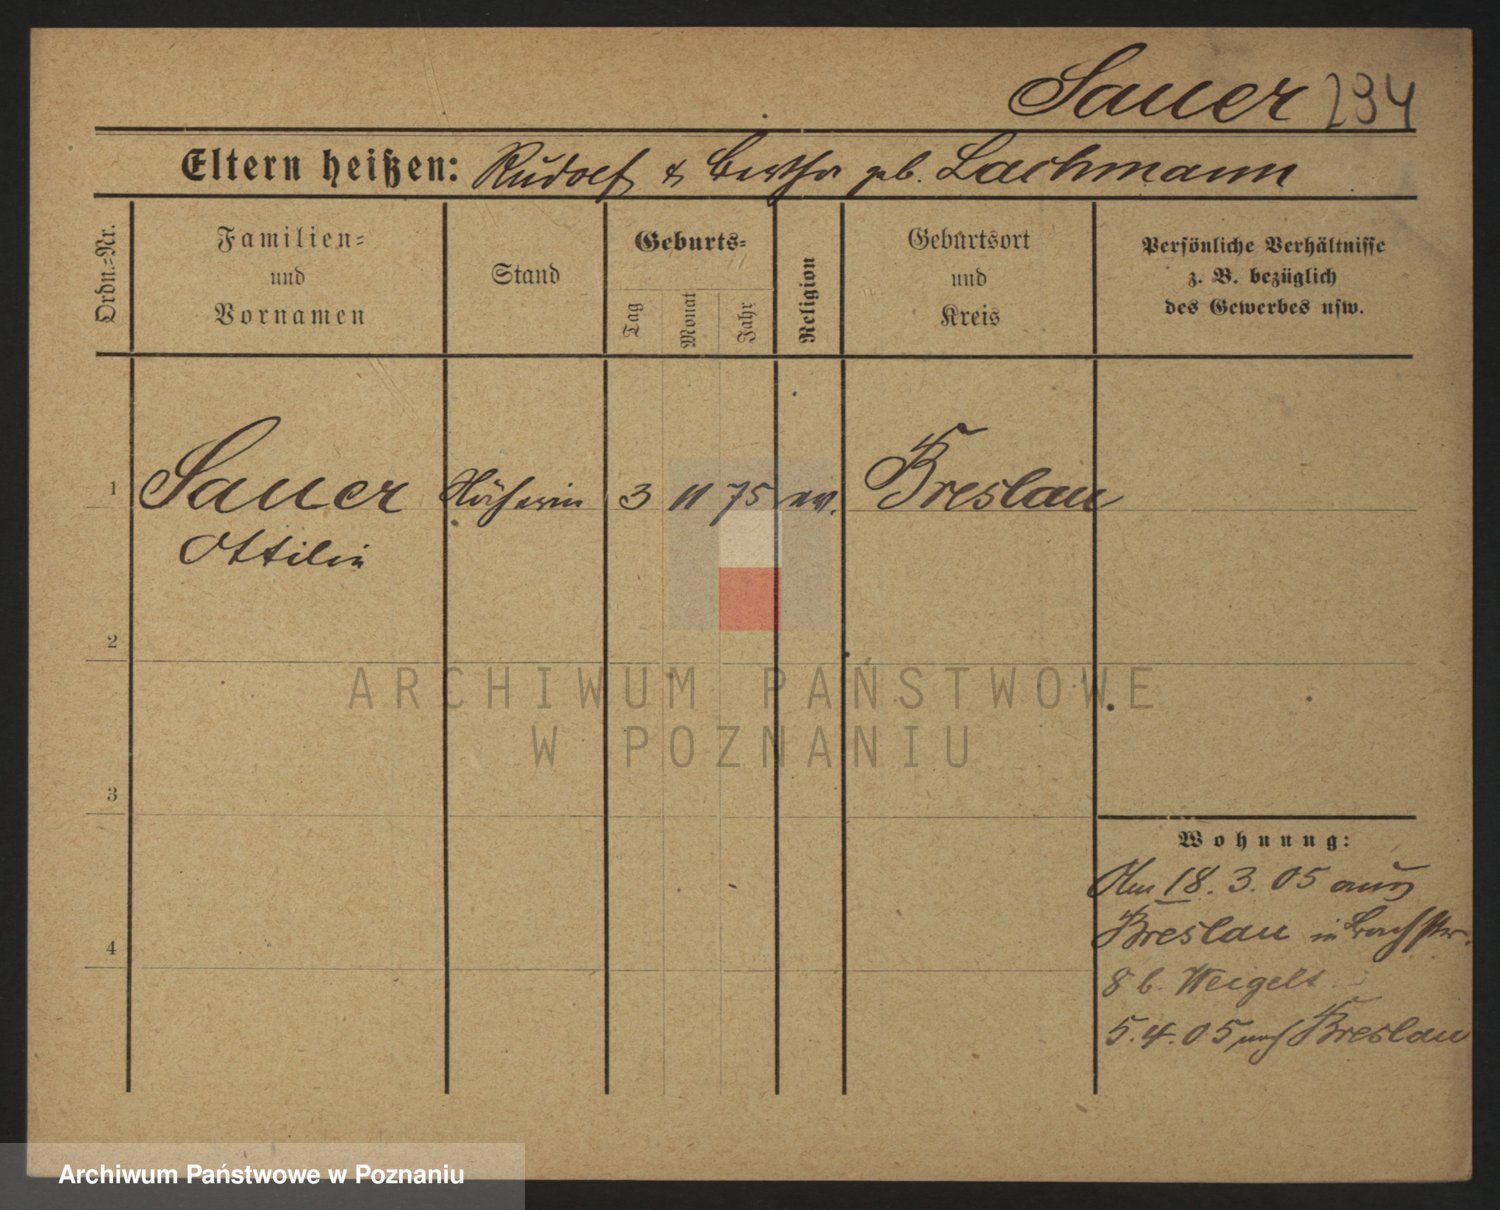 Sauer 294
Eltern heißen: Rudolf & Bertha geb. Lachmann
Ordn.-Nr.
Familien-
und
Vornamen
Stand
Geburts-
Tag
Monat
Jahr
Religion
Geburtsort
und
Kreis
Persönliche Verhältnisse
z. B. bezüglich
des Gewerbes usw.
1 Sauer Näherin 3 11 75 ev. Breslau
Ottilie
2
3
4
Wohnung:
Am 18. 3. 05 aus
Breslau in
8 b. Weigelt
5. 4. 05 nach Breslau
ARCHIWUM PAŃSTWOWE
W POZNANIU
Archiwum Państwowe w Poznaniu